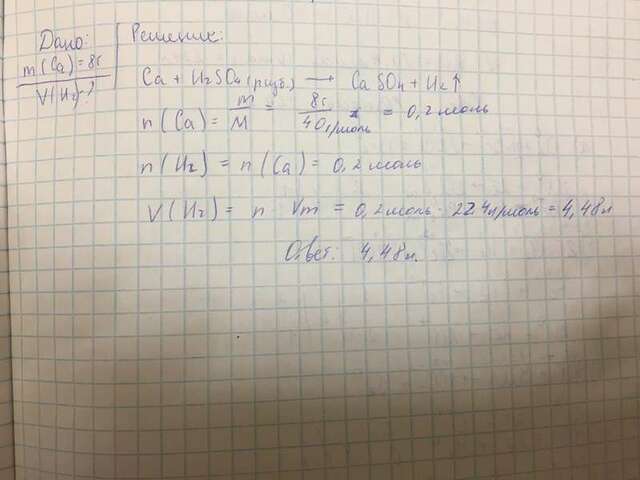 Дано:
m(Ca)=8г
V(H₂)-?
Решение:
Ca + H₂SO₄(разб) → CaSO₄ + H₂↑
n(Ca) = m/M = 8г/40г/моль = 0,2 моль
n(H₂) = n(Ca) = 0,2 моль
V(H₂) = n · Vm = 0,2моль · 22,4л/моль = 4,48л
Ответ: 4,48л.